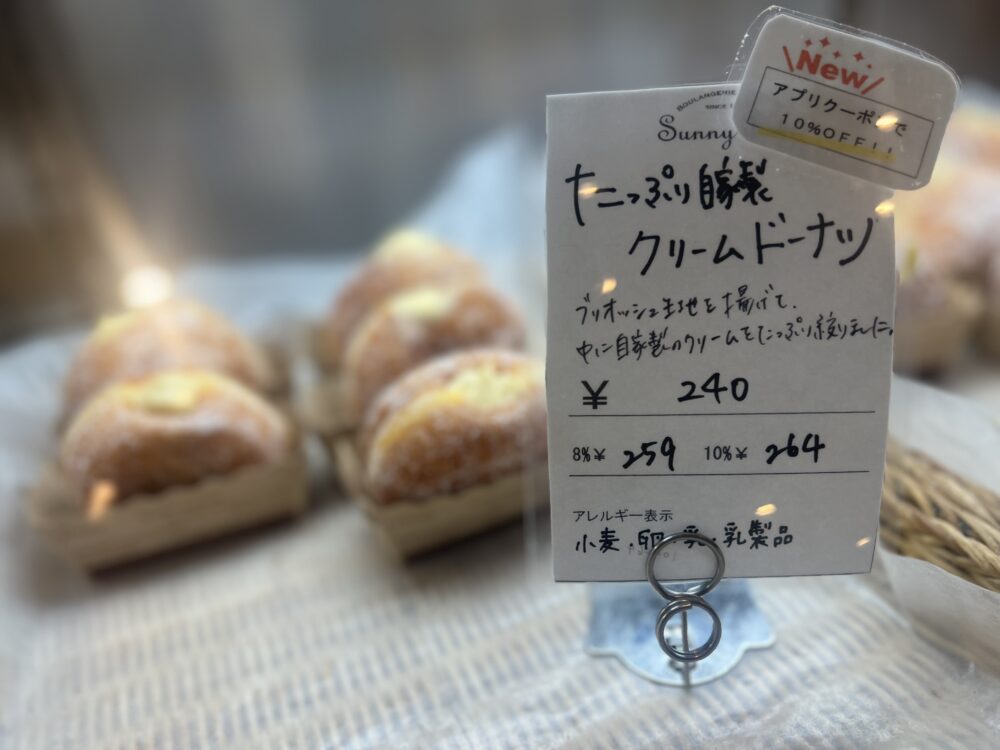 New
アプリクーポンで
10%OFF!!
BOULANGERIE
SINCE
Sunny
たっぷり自家製
クリームドーナツ
ブリオッシュ生地を揚げて、
中に自家製のクリームをたっぷり絞りました。
¥ 240
8%¥ 259 10%¥ 264
アレルギー表示
小麦・卵・乳・乳製品